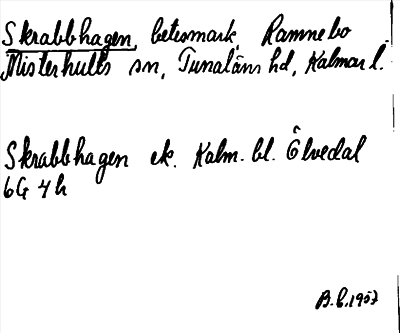 Skrabbhagen, betesmark, Ramnebo
Misterhults sn, Tunaläns hd, Kalmar l.
Skrabbhagen ek. Kalm. bl. Ölvedal
6G 4h
B.L. 1957